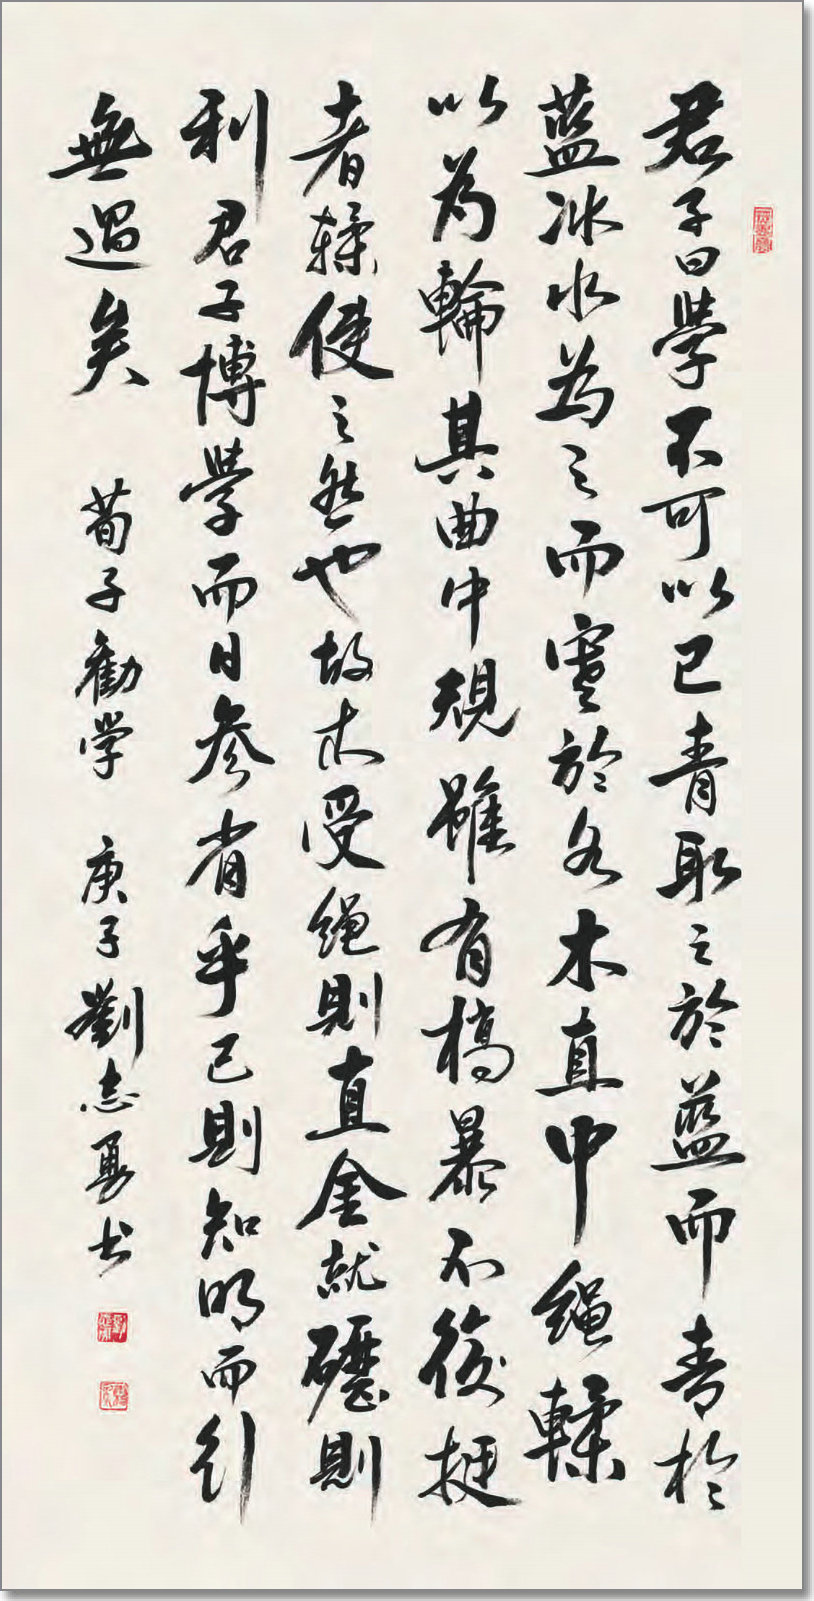 君子曰學不可以已青取之於藍而青於
藍冰水為之而寒於水木直中繩輮
以為輪其曲中規雖有槁暴不復挺
者輮使之然也故木受繩則直金就礪則
利君子博學而日參省乎己則知明而行
無過矣
荀子勸学 庚子劉志勇书